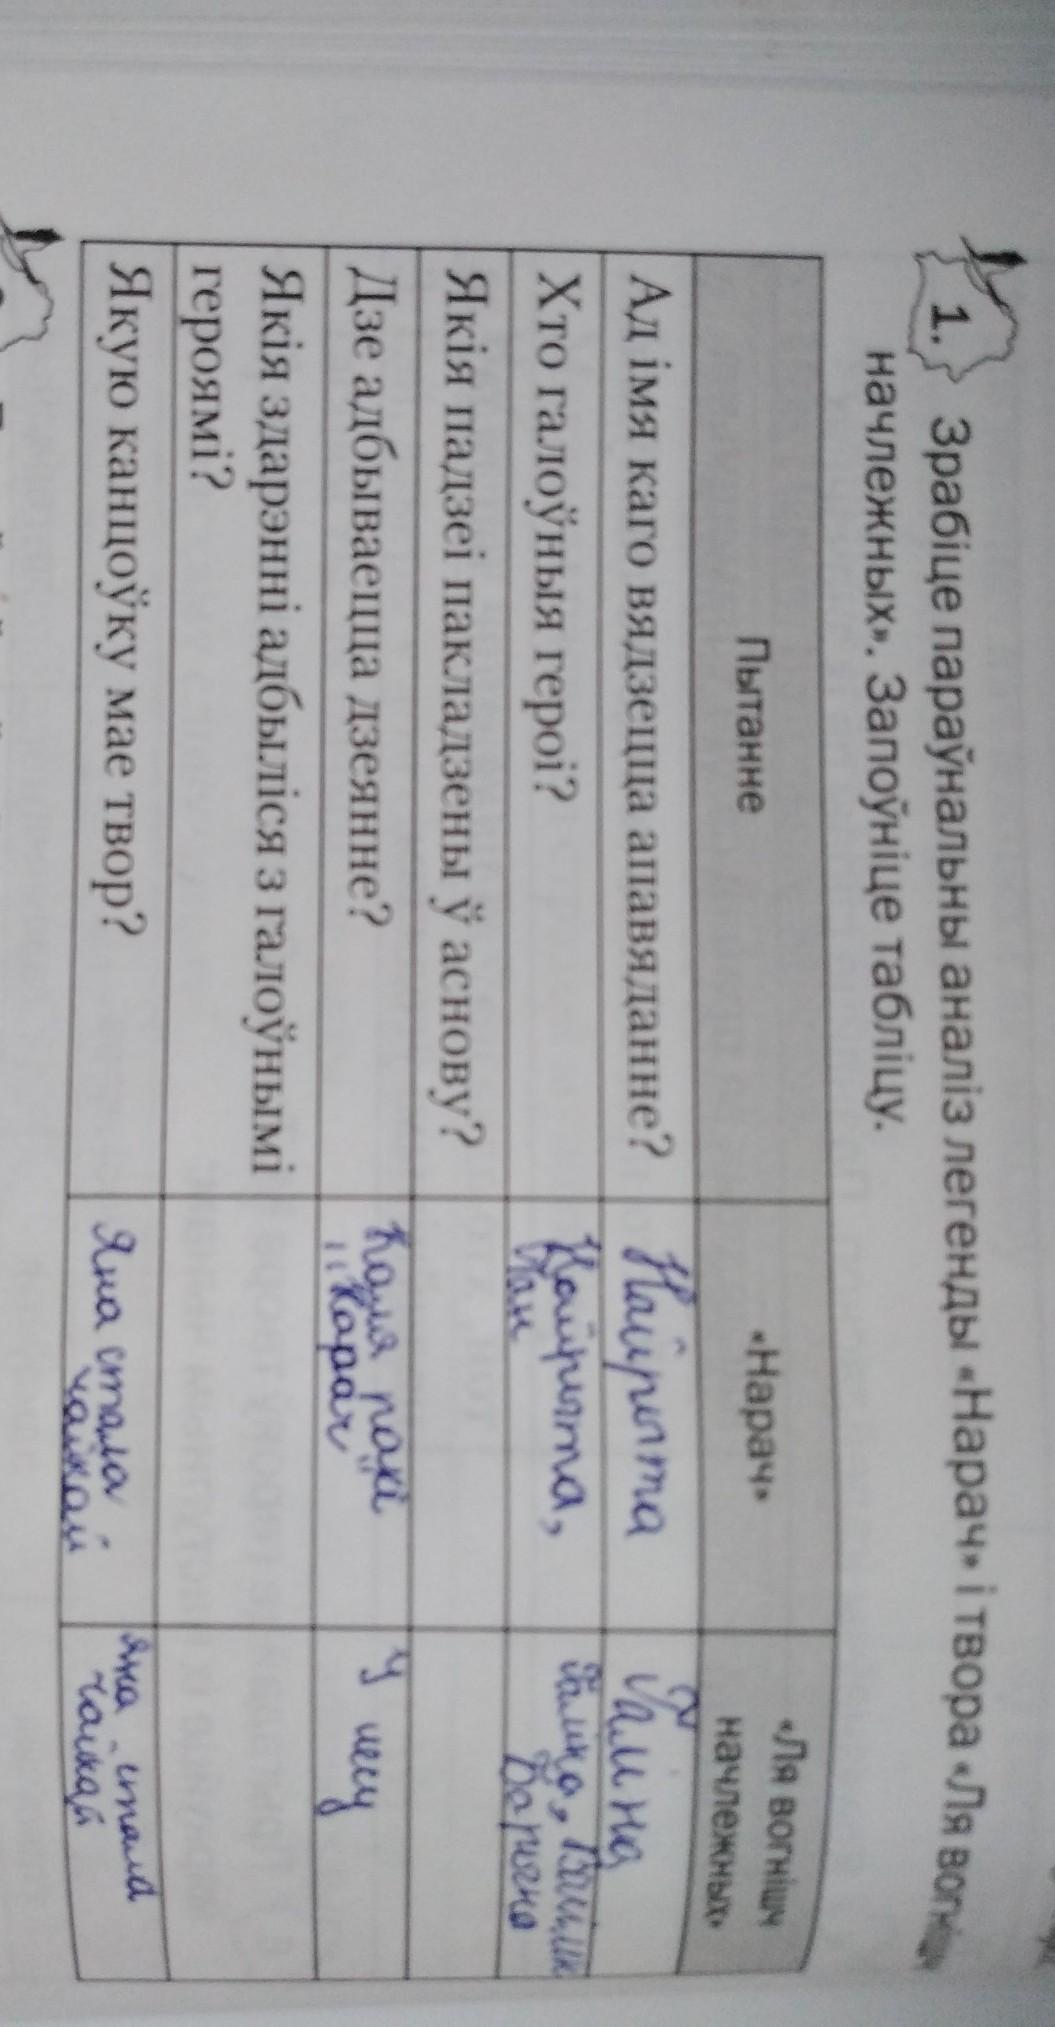 1. Зрабіце параўнальны аналіз легенды «Нарач» і твора «Ля вогнішч
начлежных». Запоўніце табліцу.
Пытанне
«Нарач»
«Ля вогнішч
начлежных»
Ад імя каго вядзецца апавяданне?
Найрыта
Галіна
Хто галоўныя героі?
Найрыта,
Пан
Васіль
Якія падзеі пакладзены ў аснову?
Дзе адбываецца дзеянне?
Каля ракі
"Нарач"
У лесу
Якія здарэнні адбыліся з галоўнымі
героямі?
Якую канцоўку мае твор?
Яна стала
чайкай
яна стала
чайкай